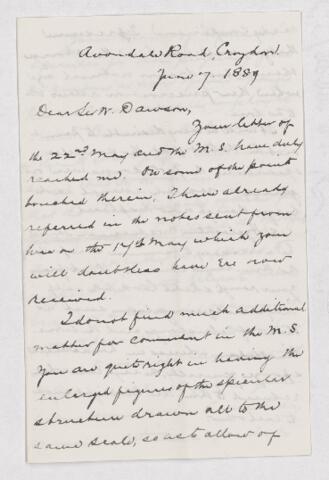 Avondale Road, Croydon
June 7. 1889
Dear Sir W. Dawson,
Your letter of
the 22nd May and the M.S. have duly
reached me. On some of the point
touched therein, I have already
referred in the notes sent from
here on the 17th May which you
will doubtless have ere now
received.
I do not find much additional
matter for comment in the M.S.
You are quite right in having the
enlarged figures of the spicular
structure drawn all to the
same scale, so as to allow of